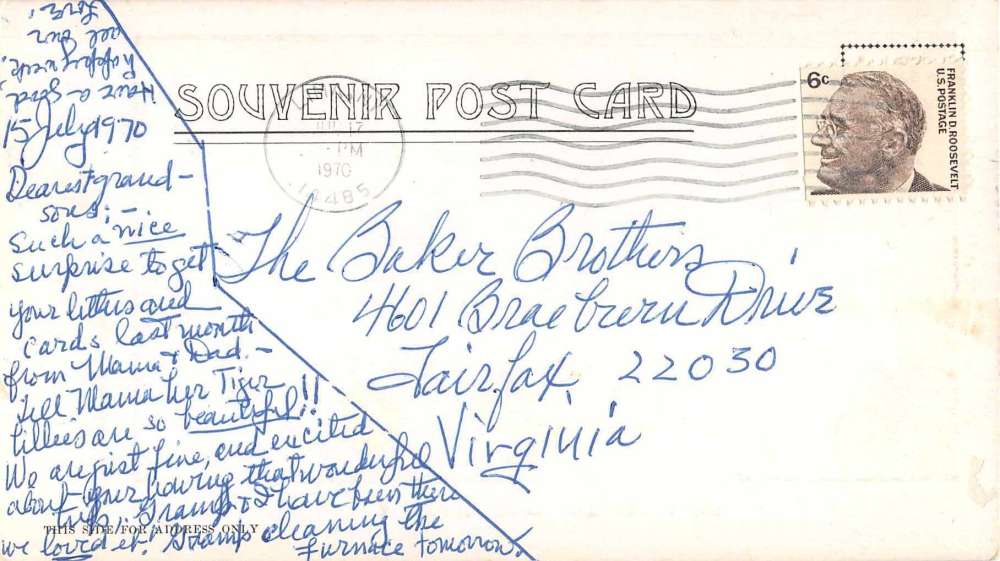 SOUVENIR POST CARD
6c
FRANKLIN D. ROOSEVELT
U.S. POSTAGE
JUL 17
PM
1970
14485
15 July 1970
Dearest grand-
sons:—
Such a nice
surprise to get
your letters and
cards last month
from Mama & Dad.—
Tell Mama her Tiger
lillies are so beautiful!!
We are just fine, and excited
about your having that wonderful
trip. Gramp & I have been there
we loved it! Gramp's cleaning the
furnace tomorrow.
Have a good
happy week,
all our
love,
The Baker Brothers
4601 Braeburn Drive
Fairfax, 22030
Virginia
THIS SIDE FOR ADDRESS ONLY